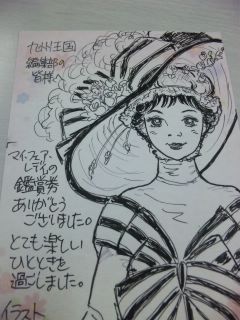 九州王国
編集部の
皆様へ
「マイ・フェア・
レディの
鑑賞券
ありがとう
ございました。
とても楽しい
ひとときを
過ごしました。
イラスト